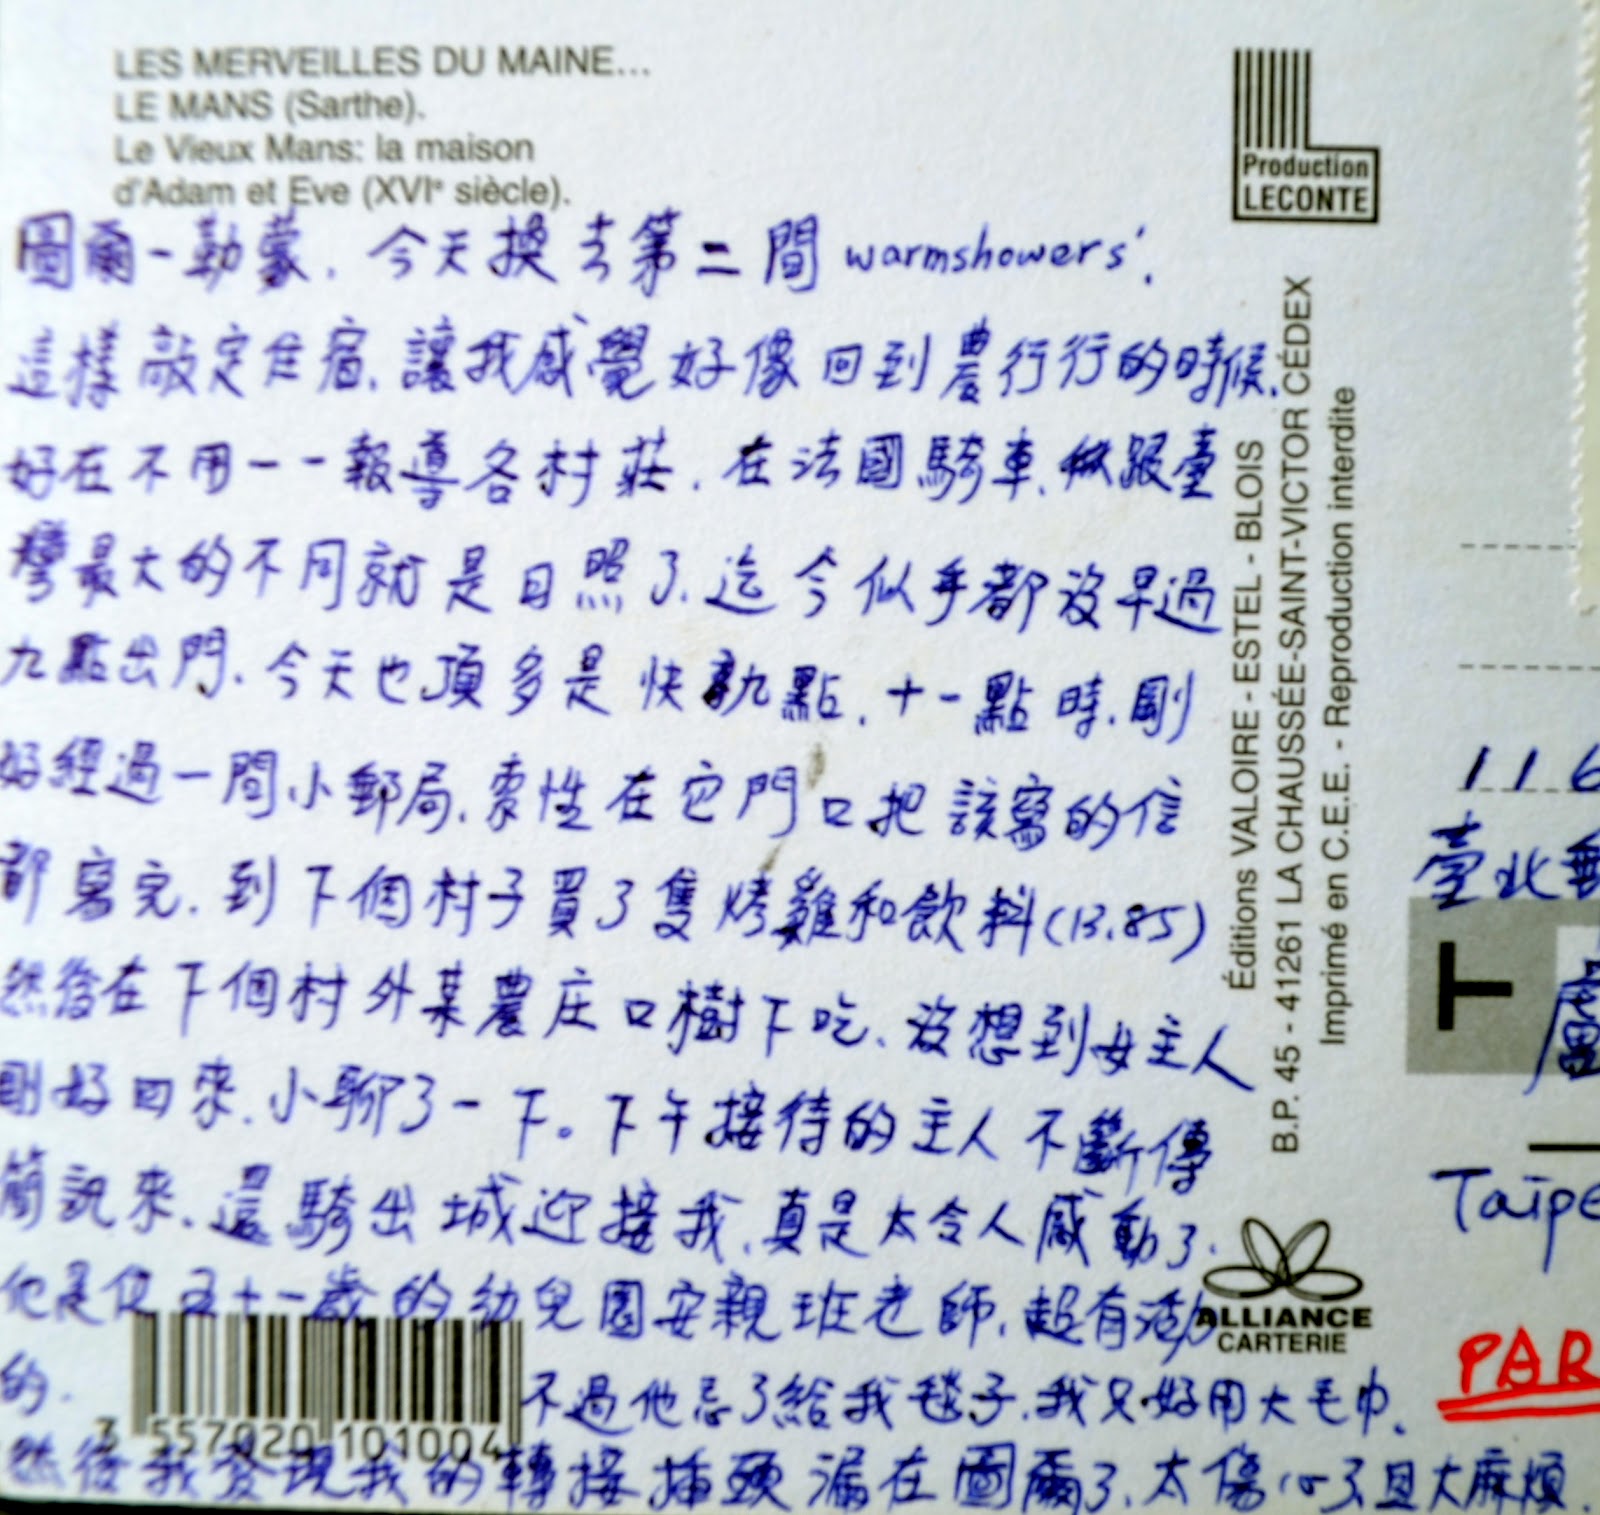 LES MERVEILLES DU MAINE...
LE MANS (Sarthe).
Le Vieux Mans: la maison
d'Adam et Eve (XVIe siècle).
Production
LECONTE
圖爾-勒蒙.今天換去第二間warmshowers'.
這樣敲定住宿.讓我感覺好像回到農行行的時候.
好在不用一一報導各村莊.在法國騎車.做跟臺
灣最大的不同就是日照了.迄今似乎都沒早過
九點出門.今天也頂多是快九點.十一點時.剛
好經過一間小郵局.索性在它門口把該寫的信
都寫完.到下個村子買了隻烤雞和飲料(13.85)
然後在下個村外某農庄口樹下吃.沒想到女主人
剛好回來.小聊了一下。下午接待的主人不斷傳
簡訊來.還騎出城迎接我.真是太令人感動了.
他是位五十一歲的幼兒園安親班老師.超有活力
的.不過他忘了給我毯子.我只好用大毛巾.
然後我發現我的轉接插頭漏在圖爾了.太傷心了且大麻煩.
3 557020 101004
Éditions VALOIRE - ESTEL - BLOIS
B.P. 45 - 41261 LA CHAUSSÉE-SAINT-VICTOR CÉDEX
Imprimé en C.E.E. - Reproduction interdite
ALLIANCE
CARTERIE
116
臺北郵
T
盧
Taipe
PAR